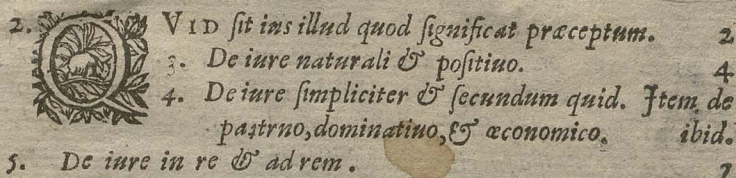 2. QVID ſit ius illud quod ſignificat præceptum. 2
3. De iure naturali & poſitiuo. 4
4. De iure ſimpliciter & ſecundum quid. Item de
paɜtrno, dominatiuo, & œconomico. ibid.
5. De iure in re & ad rem.